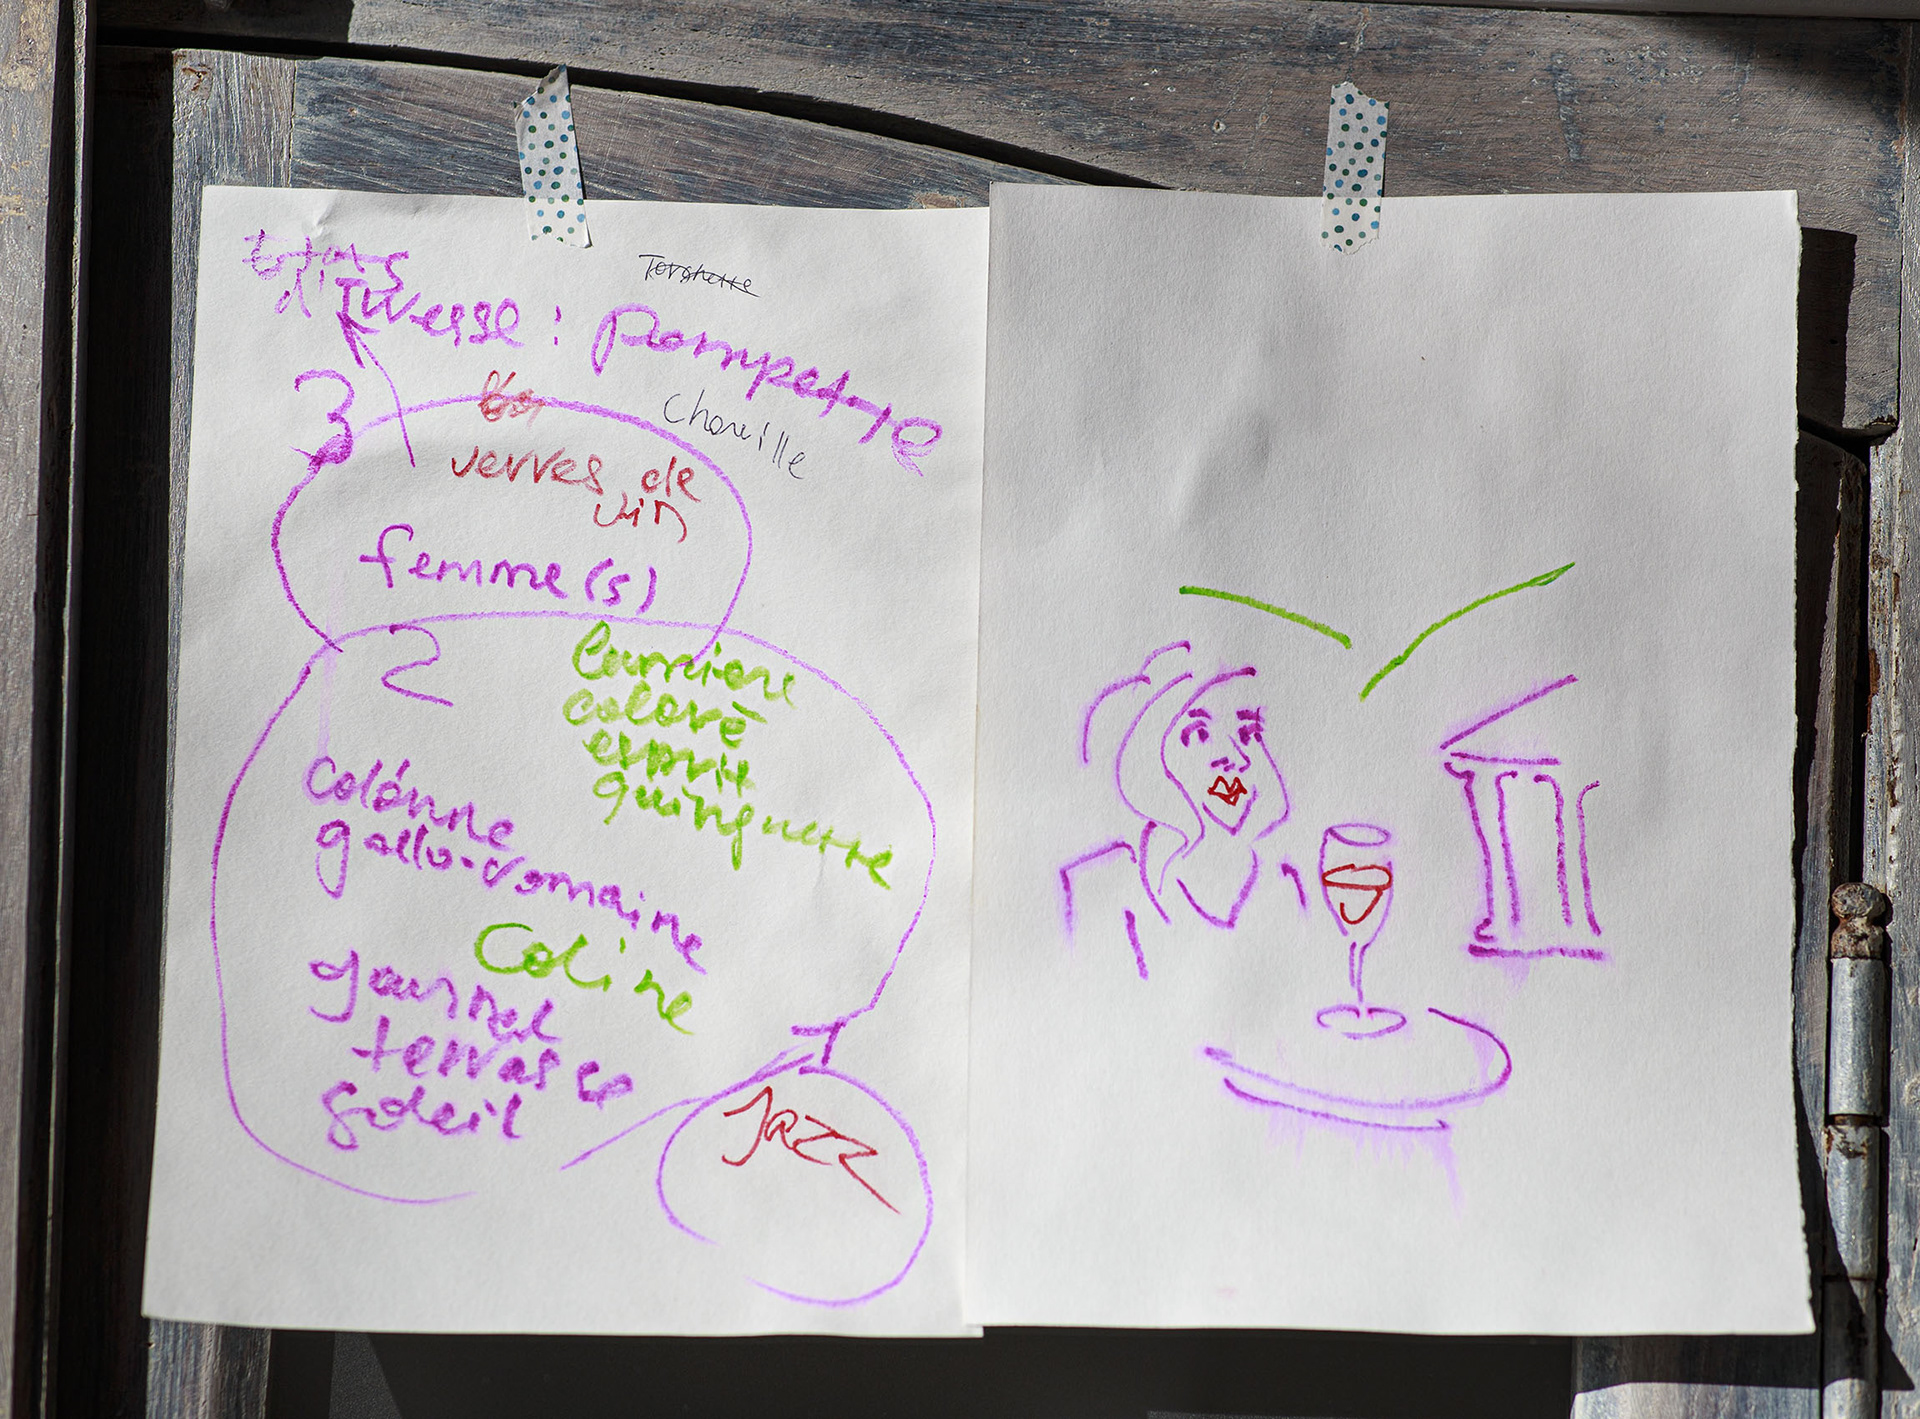 états
d'Ivresse : Pompette
3
Chouille
verres de
vin
femme(s)
2
lumière
coloré
esprit
guinguette
colónne
gallo-romaine
Coline
journal
terrasse
soleil
1
Jazz